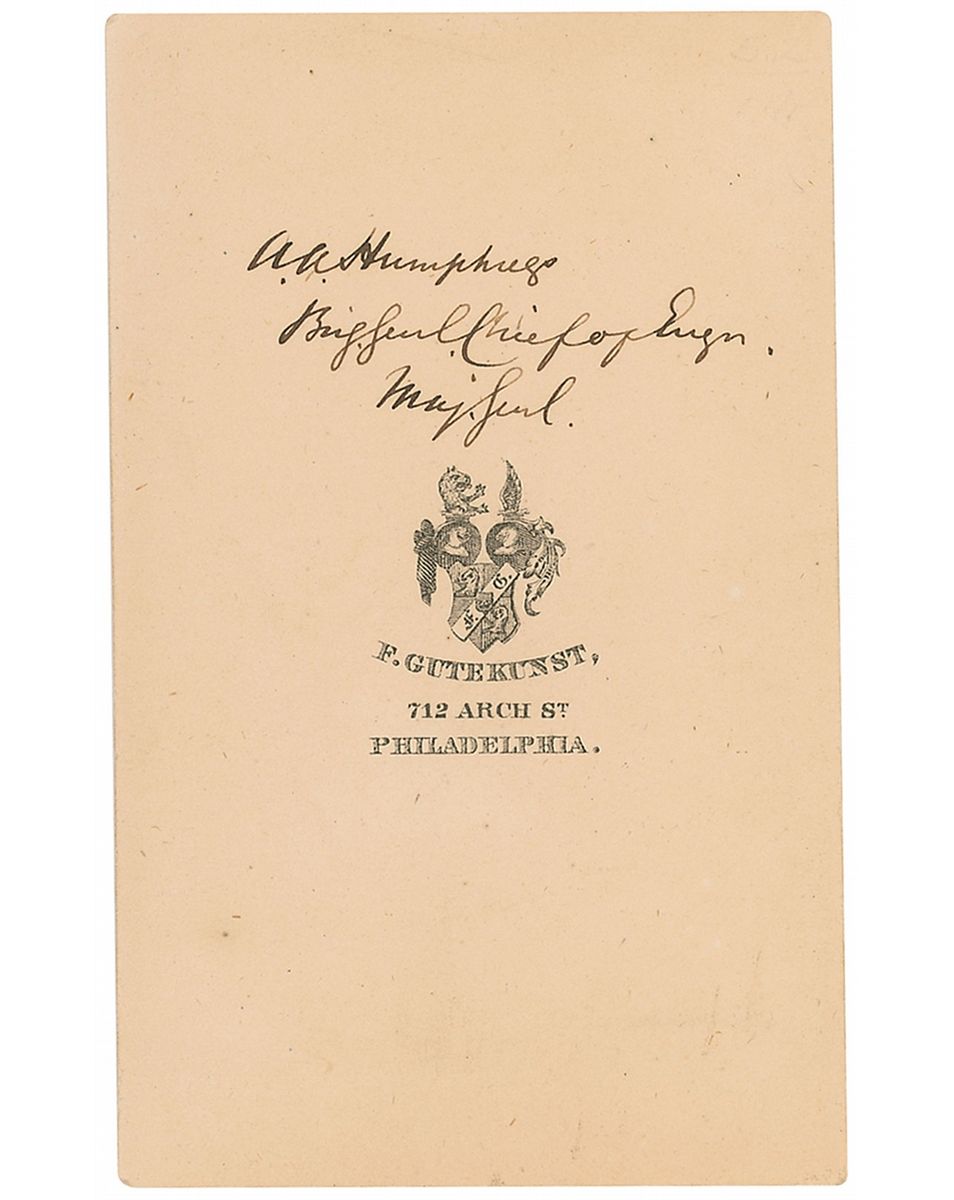 A. A. Humphreys
Brig. Genl. Chief of Engrs.
Maj. Genl.
F. G.
F. GUTEKUNST,
712 ARCH ST
PHILADELPHIA.